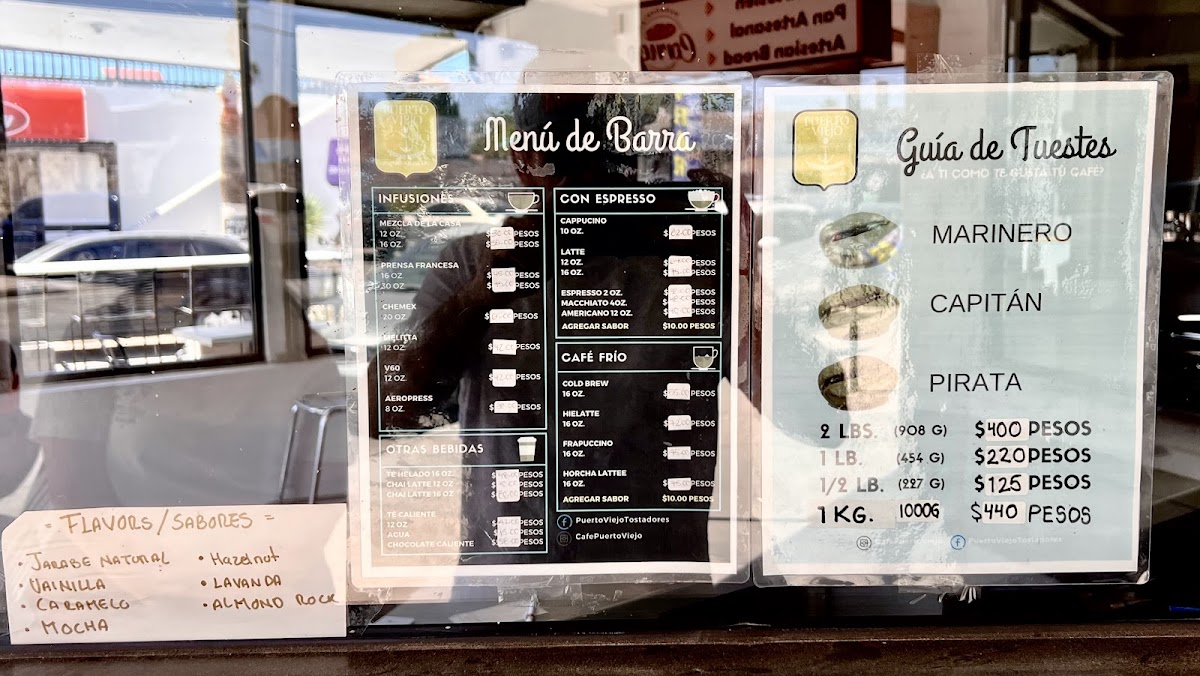 Pan Artesanal
Artesian Bread
PUERTO
Menú de Barra
INFUSIONES
MEZCLA DE LA CASA
12 OZ. PESOS
16 OZ. PESOS
PRENSA FRANCESA
16 OZ. PESOS
30 OZ. PESOS
CHEMEX
20 OZ. PESOS
MELITTA
12 OZ. PESOS
V60
12 OZ. PESOS
AEROPRESS
8 OZ. PESOS
OTRAS BEBIDAS
TÉ HELADO 16 OZ. PESOS
CHAI LATTE 12 OZ PESOS
CHAI LATTE 16 OZ PESOS
TÉ CALIENTE
12 OZ. PESOS
AGUA PESOS
CHOCOLATE CALIENTE PESOS
CON ESPRESSO
CAPPUCINO
10 OZ. PESOS
LATTE
12 OZ. PESOS
16 OZ. PESOS
ESPRESSO 2 OZ. PESOS
MACCHIATO 4OZ. PESOS
AMERICANO 12 OZ. PESOS
AGREGAR SABOR $10.00 PESOS
CAFÉ FRÍO
COLD BREW
16 OZ. PESOS
HIELATTE
16 OZ. PESOS
FRAPUCCINO
16 OZ. PESOS
HORCHA LATTEE
16 OZ. PESOS
AGREGAR SABOR $10.00 PESOS
PuertoViejoTostadores
CafePuertoViejo
PUERTO
VIEJO
Guía de Tuestes
¿A TI COMO TE GUSTA TÚ CAFÉ?
MARINERO
CAPITÁN
PIRATA
2 LBS. (908 G) $400 PESOS
1 LB. (454 G) $220 PESOS
1/2 LB. (227 G) $125 PESOS
1 KG. 1000G $440 PESOS
CafePuertoViejo PuertoViejoTostadores
= FLAVORS/SABORES =
• JARABE NATURAL
• VAINILLA
• CARAMELO
• MOCHA
• Hazelnut
• LAVANDA
• ALMOND ROCK